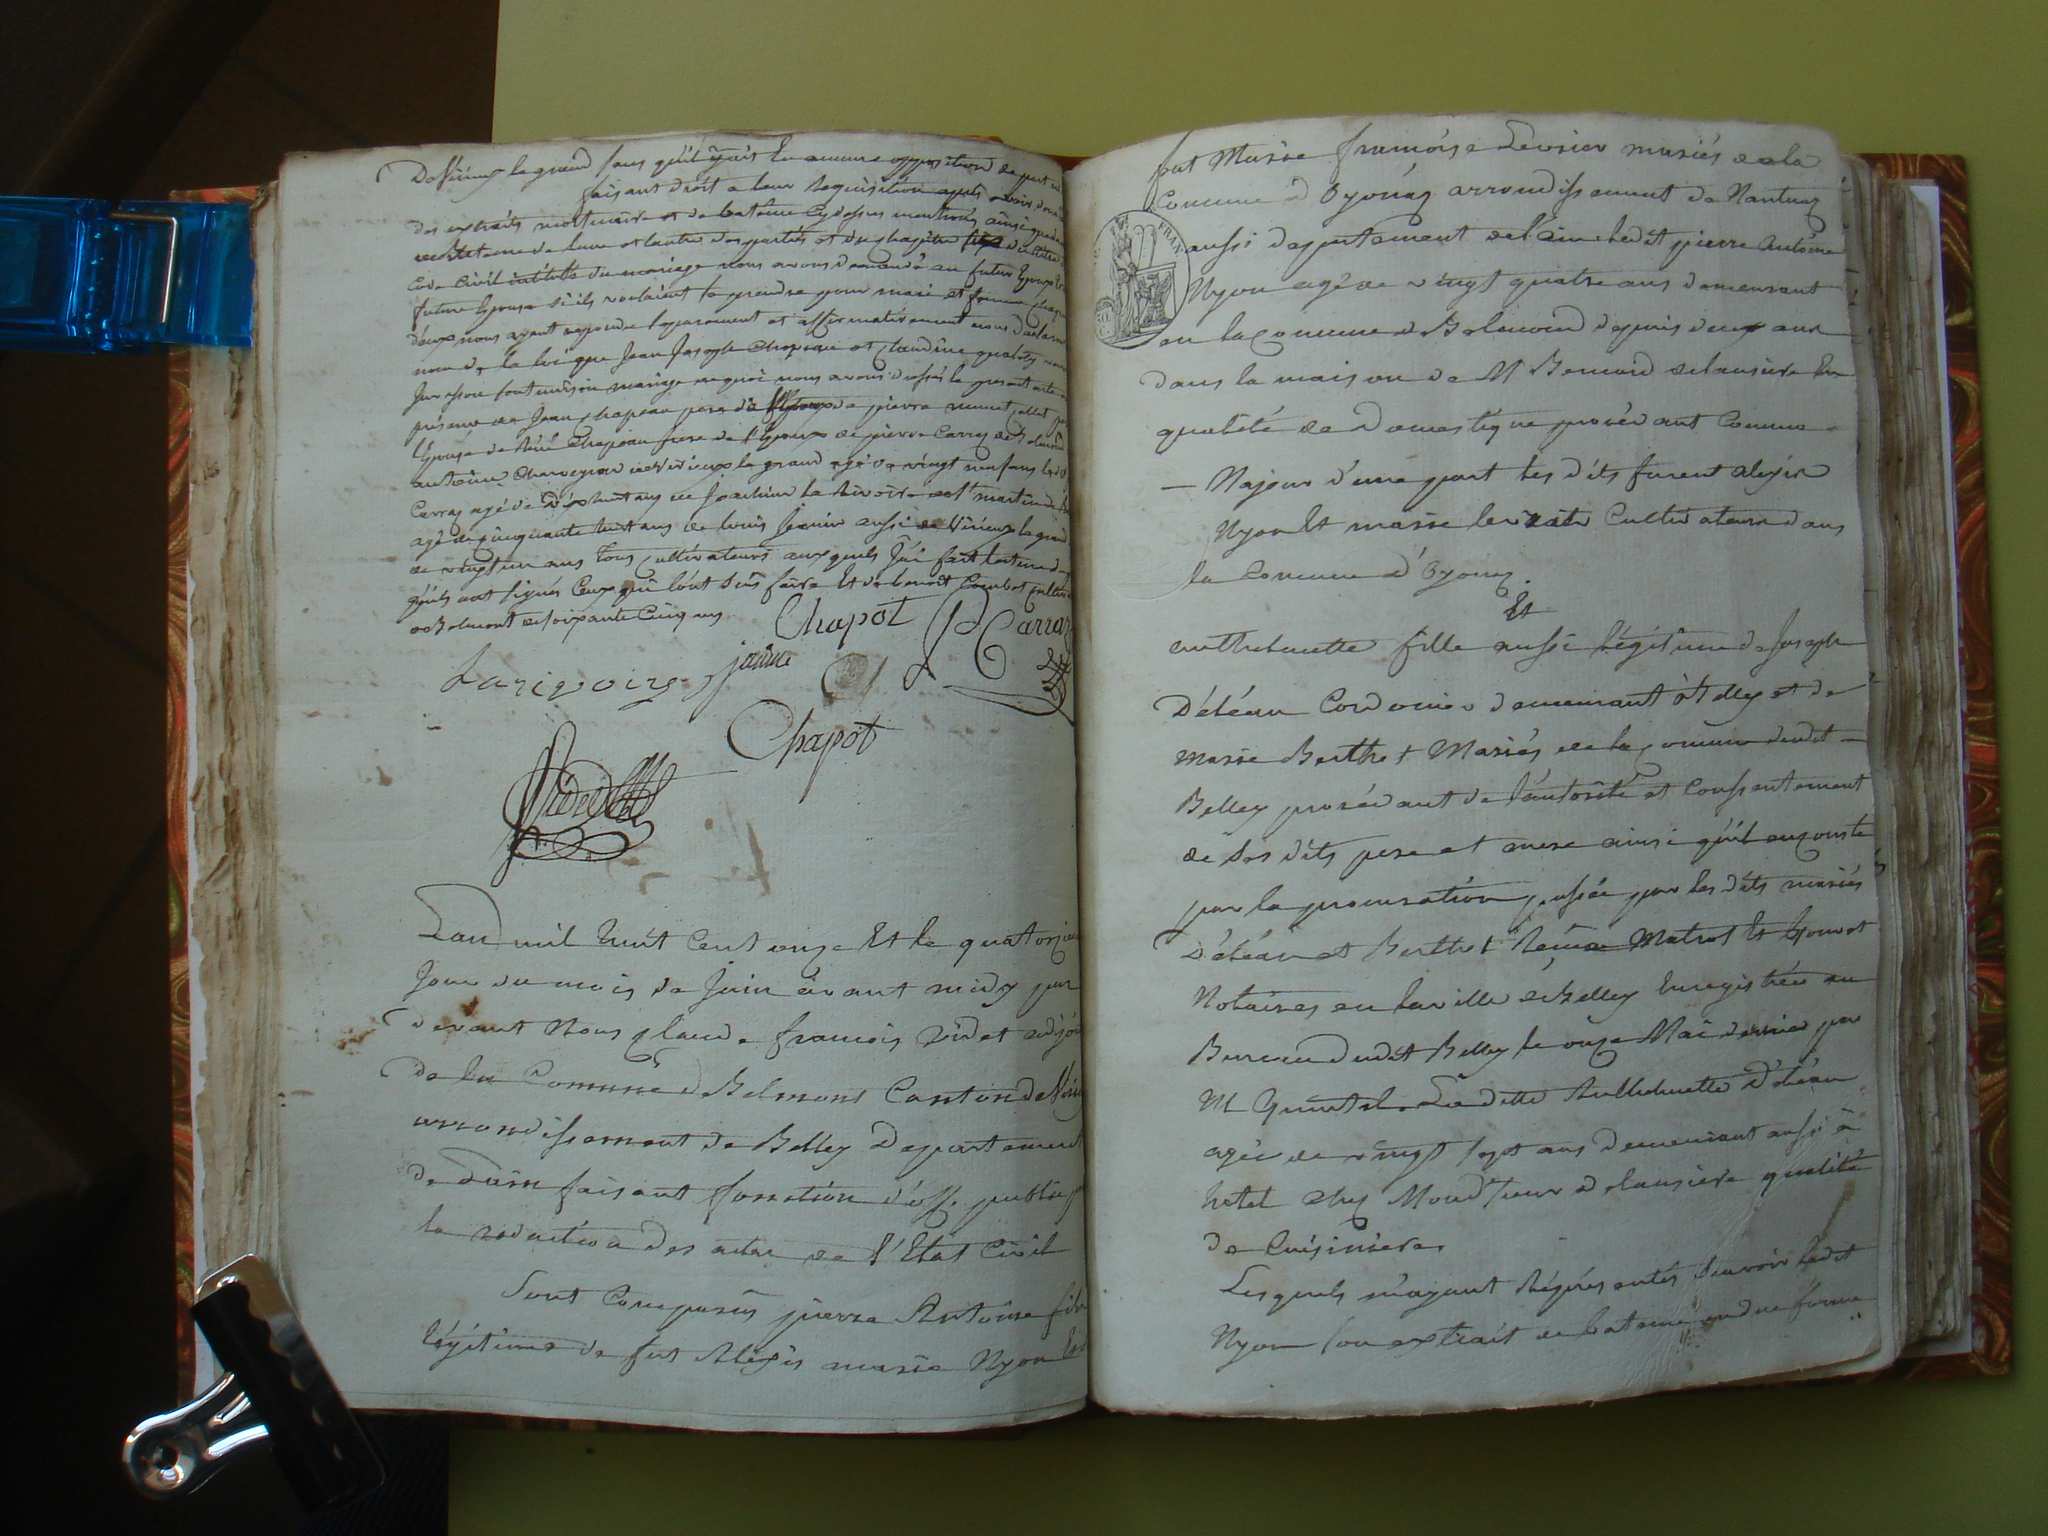 De Virieux le grand sans qu'il y ait eu aucune opposition de part et
faisant droit a leur requisition après avoir donné
des extraits mortuaire et de batême cydessus mentionés ainsi que
de l'une et l'autre des parties et du chapitre six du titre
Code Civil intitulé du mariage nous avons demandé au futur Epoux et
future Epouse s'ils veulent se prendre pour mari et femme chacun
d'eux nous ayant repondu separement et affirmativement nous declarons
nom de la loi que Jean Joseph Chapeau et Claudine
sont unis en mariage de quoi nous avons dressé le present acte
présence de Jean Chapeau pere de l'Epoux de pierre
l'Epouse de Chapeau frere de l'Epoux de pierre Carraz de
antoine Charveyron de Virieux le grand agé de vingt neuf ans
Carraz agé de dix huit ans de Joachim la Rivoire de St martin
agé de cinquante huit ans de Louis Janin aussi de Virieux le grand
de vingt un ans tous cultivateurs auxquels j'ai fait lecture
qu'ils ont signés Ceux qui l'ont sçus faire Et de benoit Combet
de Belmont de soixante Cinq ans
Chapot P Carraz
Larivoire janin
Chapot
Videt
L'an mil huit Cent onze Et le quatorzieme
Jour du mois de Juin avant midy par
devant Nous Claude françois Videt adjoint
de la Comune de Belmont Canton de Virieu
arrondissement de Belley Departement
de Lain faisant fonction d'off. public pr
la redaction des actes de l'Etat Civil
Sont Comparus pierre Antoine fils
légitime de fut Alexis marie Nyon Et de
fut Marie françoise Levrier mariés de la
Comune d'Oyonaz arrondissement de Nantua
aussi departement de l'ain ledit pierre Antoine
Nyon agé de vingt quatre ans demeurant
en la Comune de Belmond depuis deux ans
dans la maison de Mr Bernard delausiere En
qualité de Domestique procédant Comme
Majeur d'une part les dits furent alexis
Nyon Et marie Cultivateurs dans
la Comune d'Oyonaz.
Et
anthelmette fille aussi légitime de Joseph
Déléan Cordonier demeurant à Belley et de
marie Berthet Mariés de la Comune dudit
Belley procédant de l'autorité et Consentement
de Ses dits pere et mere ainsi qu'il en conste
par la procuration passée par les dits mariés
Déléan et Berthet Reçue Matrat Et Gonnet
Notaires en la ville de Belley Enregistrée au
Bureau dudit Belley le onze Mai dernier par
M. Quintal. La ditte Anthelmette Déléan
agée de vingt sept ans demeurant aussi à
hotel chez Mondsieur delausiere qualité
de Cuisiniere
Lesquels m'ayant Réprésentés Sçavoir ledit
Nyon son extrait de bateme en due forme
FRAN